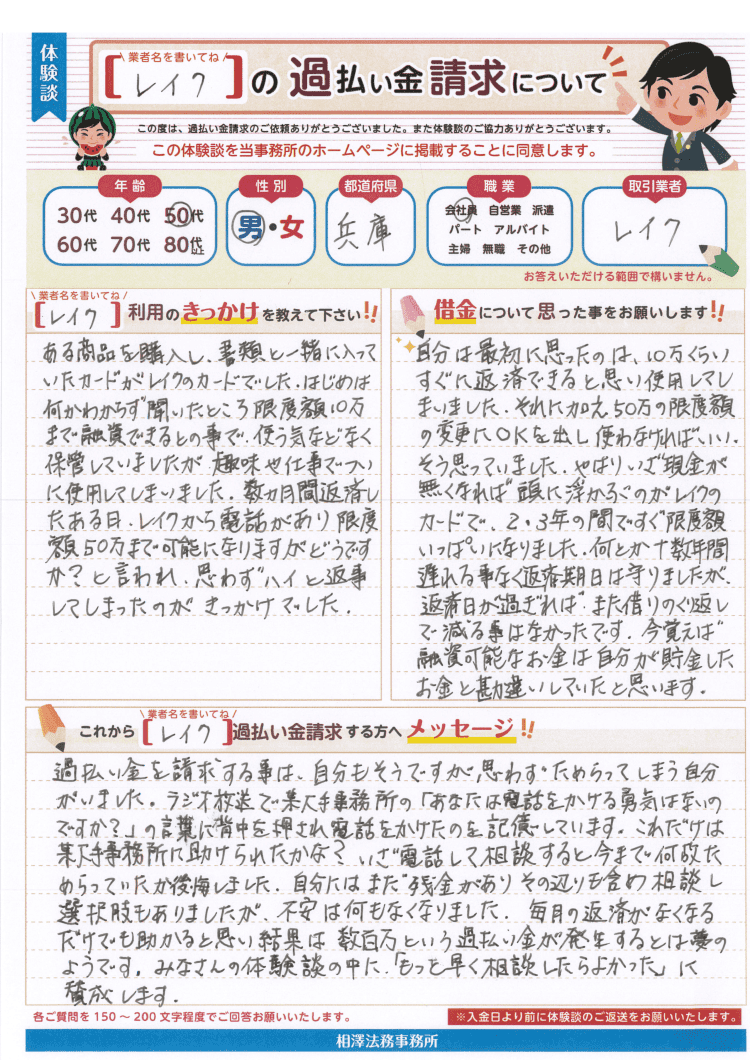 体験談
\ 業者名を書いてね /
[レイク]の過払い金請求について
この度は、過払い金請求のご依頼ありがとうございました。また体験談のご協力ありがとうございます。
この体験談を当事務所のホームページに掲載することに同意します。
年齢 性別 都道府県 職業 取引業者
30代 40代 50代
60代 70代 80代以上
男・女
兵庫
会社員 自営業 派遣
パート アルバイト
主婦 無職 その他
レイク
お答えいただける範囲で構いません。
\ 業者名を書いてね /
[レイク]利用のきっかけを教えて下さい!!
ある商品を購入し、書類と一緒に入って
いたカードがレイクのカードでした.はじめは
何かわからず開いたところ限度額10万
まで融資できるとの事で、使う気などなく
保管していましたが 趣味や仕事でつい
に使用してしまいました.数カ月間返済し
たある日、レイクから電話があり限度
額50万まで可能になりますがどうです
か?と言われ、思わずハイと返事
してしまったのが きっかけでした.
借金について思った事をお願いします!!
自分は最初に思ったのは、10万くらい
すぐに返済できると思い使用してし
まいました.それに加え50万の限度額
の変更にOKを出し 使わなければいい.
そう思っていました.やはりいざ現金が
無くなれば 頭に浮かぶのがレイクの
カードで、2・3年の間ですぐ限度額
いっぱいになりました.何とか十数年間
遅れる事なく返済期日は守りましたが、
返済日が過ぎれば また借りのくり返し
で減る事はなかったです.今覚えば
融資可能なお金は自分が貯金した
お金と勘違いしていたと思います.
これから
\ 業者名を書いてね /
[レイク]過払い金請求する方へメッセージ!!
過払い金を請求する事は、自分もそうですが思わずためらってしまう自分
がいました.ラジオ放送で某大手事務所の「あなたは電話をかける勇気はないの
ですか?」の言葉に背中を押され電話をかけたのを記憶しています.これだけは
某大手事務所に助けられたかな? いざ電話して相談すると今まで何故た
めらっていたか後悔しました.自分にはまだ残金がありその辺りも含め相談し
選択肢もありましたが、不安は何もなくなりました. 毎月の返済がなくなる
だけでも助かると思い結果は 数百万という過払い金が発生するとは夢の
ようです.みなさんの体験談の中に、「もっと早く相談したらよかった」に
賛成します.
各ご質問を 150~200 文字程度でご回答お願いいたします。
※入金日より前に体験談のご返送をお願いいたします。
相澤法務事務所